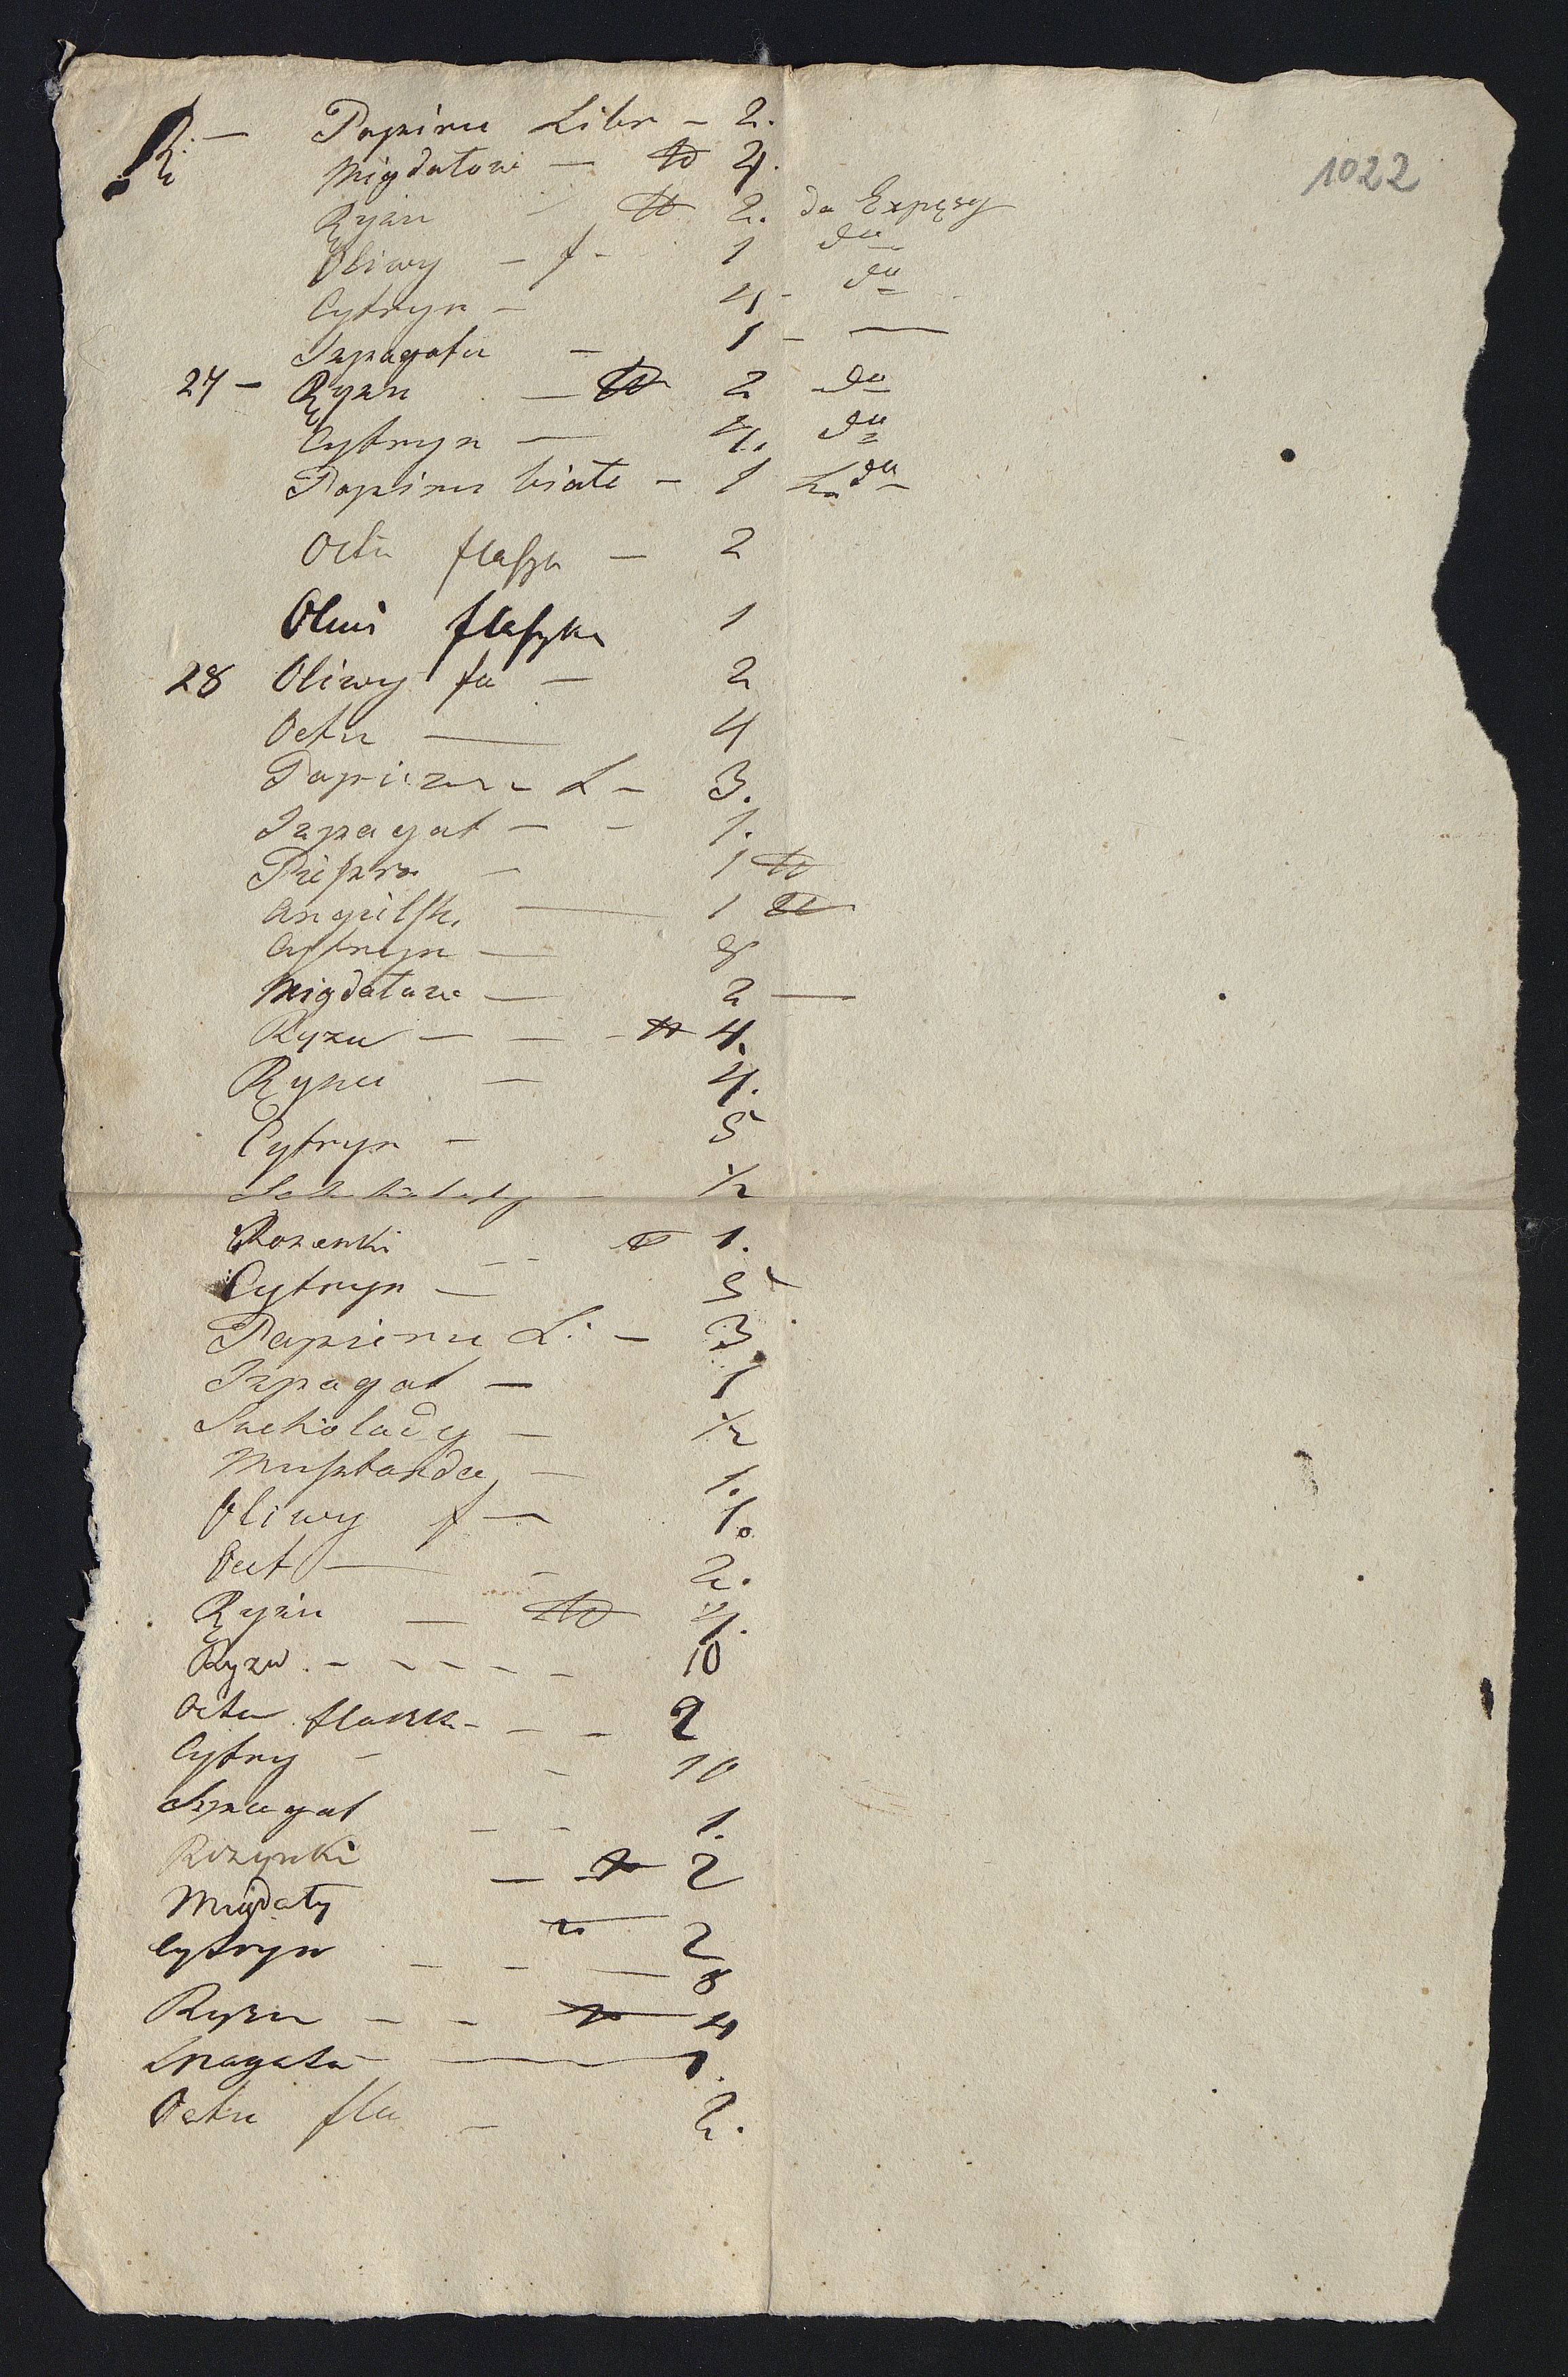 1022
Papiru Libr – 2.
Migdałow – ℔ 4.
Ryżu ℔ 2. do Expęsy
Oliwy – f – 1 do
Cytryn – 4 – do
Szpagatu – 1 –
27 – Ryżu – ℔ 2 do
Cytryn – 4. do
Papiru białe – 1 do
Octu flaszk – 2
flaszka 1
28 Oliwy fa – 2
Octu – 4
Papieru L – 3.
Szpagat – – 1.
Pieprzu – 1 ℔
Angielsk. – 1 ℔
Cytryn – 8
Migdałow – 2 –
Ryzu – – – ℔ 4.
Ryzu – 4.
Cytryn – 5
– ½
Rozenki – ℔ 1.
Cytryn – 5
Papieru L: – 3
Szpagat – 1
Szekolady – ½
Musztarda – 1.
Oliwy f – 1.
Oct – – 2.
Ryżu – ℔ 4.
Ryzu. – – – – – – 10
Octu flaszk – – – 2
Cytry – – 10
Szpagat – – 1.
Rozynki – ℔ 2
Migdały ℔ 2
Cytryn – – – 8
Ryzu – – ℔ 4
Spagatu – 1.
Octu fla – 2.